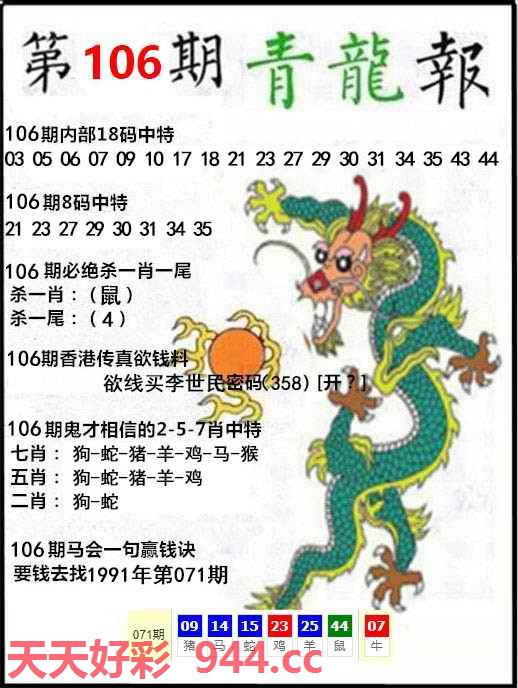 第106期青龍報
106期内部18码中特
03 05 06 07 09 10 17 18 21 23 27 29 30 31 34 35 43 44
106期8码中特
21 23 27 29 30 31 34 35
106期必绝杀一肖一尾
杀一肖：（鼠）
杀一尾：（4）
106期香港传真欲钱料
欲线买李世民密码(358) [开？]
106期鬼才相信的2-5-7肖中特
七肖：狗-蛇-猪-羊-鸡-马-猴
五肖：狗-蛇-猪-羊-鸡
二肖：狗-蛇
106期马会一句赢钱诀
要钱去找1991年第071期
071期 09 14 15 23 25 44 07
猪 马 蛇 鸡 羊 鼠 牛
天天好彩 944.cc